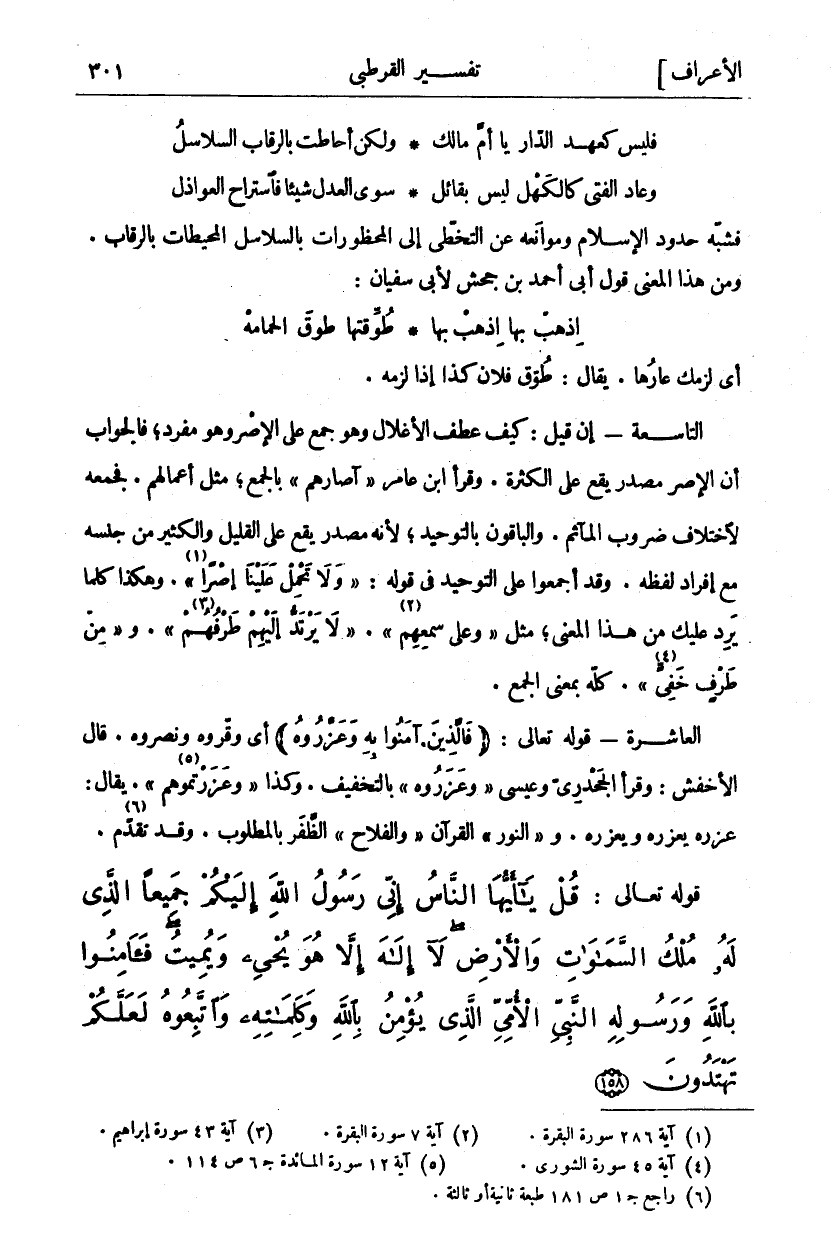 الأعراف] تفسير القرطبى ٣٠١
فليس كعهد الدّار يا أمَّ مالك * ولكن أحاطت بالرقاب السلاسلُ
وعاد الفتى كالكَهْل ليس بقائل * سوى العدل شيئا فٱستراح العواذل
فشبّه حدود الإسلام وموانَعه عن التخطّى إلى المحظورات بالسلاسل المحيطات بالرقاب .
ومن هذا المعنى قول أبى أحمد بن جحش لأبى سفيان :
اِذهبْ بها اِذهبْ بها * طُوِّقتها طوقَ الحمامهْ
أى لزمك عارُها . يقال : طُوّق فلان كذا إذا لزمه .
التاسعة — إن قيل : كيف عطف الأغلال وهو جمع على الإصْر وهو مفرد؛ فالجواب
أن الإصر مصدر يقع على الكثرة . وقرأ ابن عامر « آصارهم » بالجمع؛ مثل أعمالهم . فجمعه
لاختلاف ضروب المآثم . والباقون بالتوحيد؛ لأنه مصدر يقع على القليل والكثير من جلسه
مع إفراد لفظه . وقد أجمعوا على التوحيد فى قوله : « وَلَا تَحْمِلْ عَلَيْنَا إِصْرًا (١) » . وهكذا كلما
يَرِد عليك من هذا المعنى؛ مثل « وعلى سمعِهِم (٢) » . « لَا يَرْتَدُّ إِلَيْهِمْ طَرْفُهُمْ (٣) » . و « مِنْ
طَرْفٍ خَفِىٍّ (٤) » . كلّه بمعنى الجمع .
العاشرة — قوله تعالى : ﴿ فَالَّذِينَ آمَنُوا بِهِ وَعَزَّرُوهُ ﴾ أى وقّروه ونصروه . قال
الأخفش : وقرأ الجَحْدرىّ وعيسى « وعَزَرُوه » بالتخفيف . وكذا « وعَزَرْتموهم (٥) » . يقال :
عزره يعزِره ويعزُره . و « النور » القرآن « والفلاح » الظَّفَر بالمطلوب . وقد تقدّم (٦) .
قوله تعالى : قُلْ يَـٰٓأَيُّهَا النَّاسُ إِنِّى رَسُولُ اللَّهِ إِلَيْكُمْ جَمِيعاً الَّذِى
لَهُۥ مُلْكُ السَّمَـٰوَٰتِ وَالْأَرْضِ لَآ إِلَـٰهَ إِلَّا هُوَ يُحْىِۦ وَيُمِيتُ فَـَٔامِنُوا
بِٱللَّهِ وَرَسُولِهِ النَّبِىِّ الْأُمِّىِّ الَّذِى يُؤْمِنُ بِٱللَّهِ وَكَلِمَـٰتِهِۦ وَٱتَّبِعُوهُ لَعَلَّكُمْ
تَهْتَدُونَ ﴿١٥٨﴾
(١) آية ٢٨٦ سورة البقرة . (٢) آية ٧ سورة البقرة . (٣) آية ٤٣ سورة إبراهيم .
(٤) آية ٤٥ سورة الشورى . (٥) آية ١٢ سورة المائدة ج ٦ ص ١١٤ .
(٦) راجع ج ١ ص ١٨١ طبعة ثانية أو ثالثة .